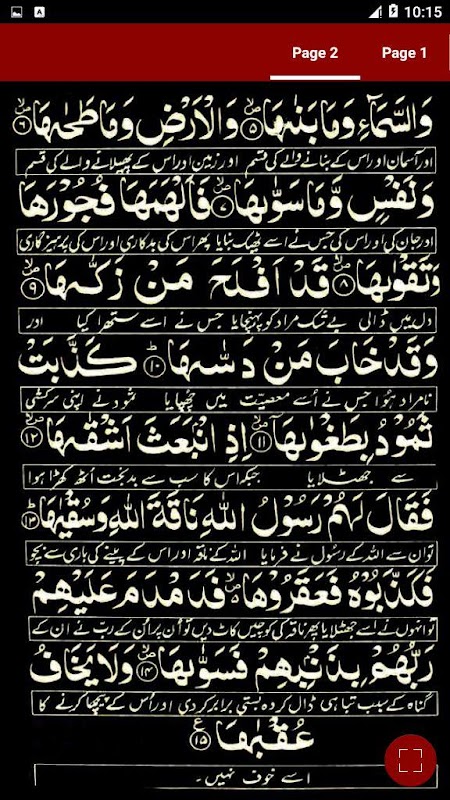 10:15
Page 2 Page 1
وَالسَّمَآءِ وَمَا بَنٰىهَا ۝۵ وَالْاَرْضِ وَمَا طَحٰىهَا ۝۶
اور آسمان اور اس کے بنانے والے کی قسم اور زمین اور اس کے پھیلانے والے کی قسم
وَنَفْسٍ وَّمَا سَوّٰىهَا ۝۷ فَاَلْهَمَهَا فُجُوْرَهَا
اور جان کی اور اس کی جس نے اسے ٹھیک بنایا پھر اس کی بدکاری اور اس کی پرہیزگاری
وَتَقْوٰىهَا ۝۸ قَدْ اَفْلَحَ مَنْ زَكّٰىهَا ۝۹
دل میں ڈالی بے شک مراد کو پہنچایا جس نے اسے ستھرا کیا اور
وَقَدْ خَابَ مَنْ دَسّٰىهَا ۝۱۰ كَذَّبَتْ
نامراد ہوا جس نے اُسے معصیت میں چھپایا ثمود نے اپنی سرکشی
ثَمُوْدُ بِطَغْوٰىهَا ۝۱۱ اِذِ انْۢبَعَثَ اَشْقٰىهَا ۝۱۲
سے جھٹلایا جبکہ اس کا سب سے بدبخت اُٹھ کھڑا ہوا
فَقَالَ لَهُمْ رَسُوْلُ اللّٰهِ نَاقَةَ اللّٰهِ وَسُقْيٰهَا ۝۱۳
تو ان سے اللہ کے رسُول نے فرمایا اللہ کے ناقہ اور اس کے پینے کی باری سے بچو
فَكَذَّبُوْهُ فَعَقَرُوْهَا فَدَمْدَمَ عَلَيْهِمْ
تو انہوں نے اسے جھٹلایا پھر ناقہ کی کوچیں کاٹ دیں تو اُن پر اُن کے ربّ نے ان کے
رَبُّهُمْ بِذَنْۢبِهِمْ فَسَوّٰىهَا ۝۱۴ وَلَا يَخَافُ
گناہ کے سبب تباہی ڈال کر وہ بستی برابر کر دی اور اُس کے پیچھا کرنے کا
عُقْبٰهَا ۝۱۵
اسے خوف نہیں۔